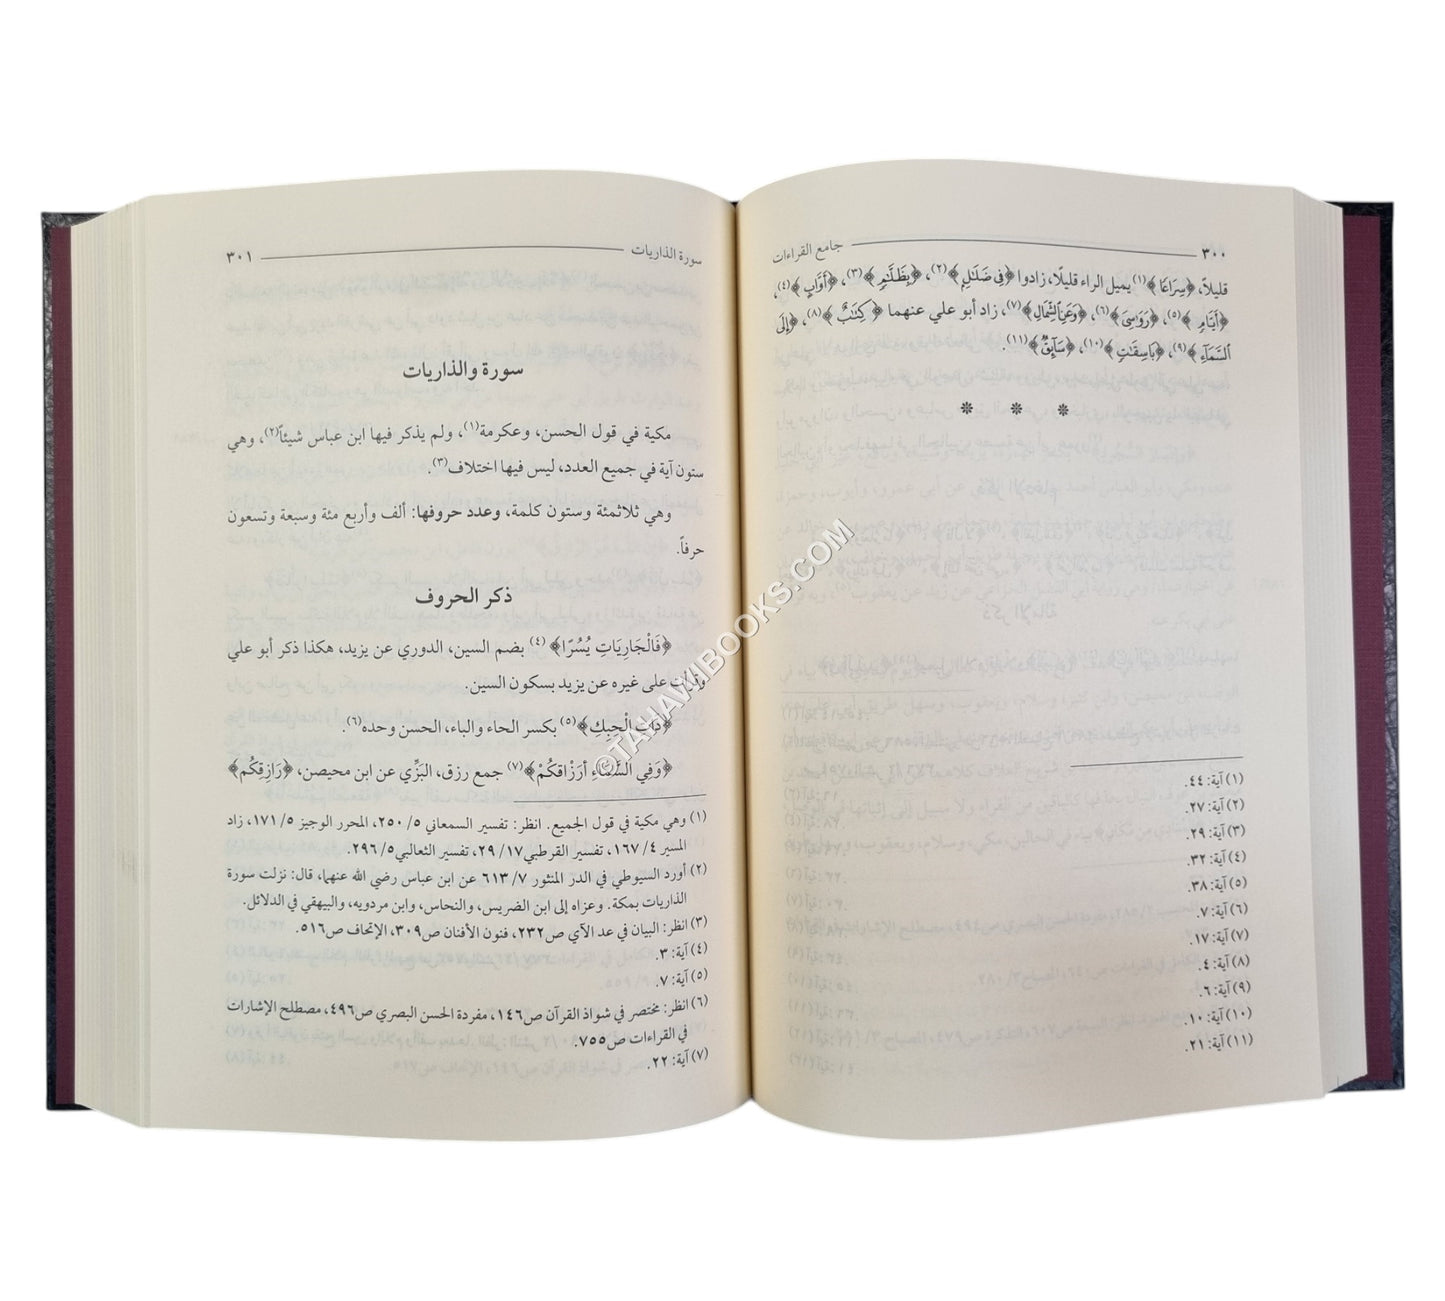 ٣٠٠ جامع القراءات
قليلاً، ﴿سِرَاعًا﴾(١) يميل الراء قليلًا، زادوا ﴿فِي ضَلَٰلٍ﴾(٢)، ﴿بِظَلَّٰمٍ﴾(٣)، ﴿أَوَّابٍ﴾(٤)،
﴿أَيَّامٍ﴾(٥)، ﴿رَوَٰسِيَ﴾(٦)، ﴿وَعَنِ ٱلشِّمَالِ﴾(٧)، زاد أبو علي عنهما ﴿كِتَٰبٌ﴾(٨)، ﴿إِلَى
ٱلسَّمَآءِ﴾(٩)، ﴿بَاسِقَٰتٍ﴾(١٠)، ﴿سَآئِقٌ﴾(١١).
* * *
(١) آية: ٤٤.
(٢) آية: ٢٧.
(٣) آية: ٢٩.
(٤) آية: ٣٢.
(٥) آية: ٣٨.
(٦) آية: ٧.
(٧) آية: ١٧.
(٨) آية: ٤.
(٩) آية: ٦.
(١٠) آية: ١٠.
(١١) آية: ٢١.
سورة الذاريات ٣٠١
سورة والذاريات
مكية في قول الحسن، وعكرمة(١)، ولم يذكر فيها ابن عباس شيئاً(٢)، وهي
ستون آية في جميع العدد، ليس فيها اختلاف(٣).
وهي ثلاثمئة وستون كلمة، وعدد حروفها: ألف وأربع مئة وسبعة وتسعون
حرفاً.
ذكر الحروف
﴿فَالْجَارِيَاتِ يُسُرًا﴾(٤) بضم السين، الدوري عن يزيد، هكذا ذكر أبو علي
وقرأت على غيره عن يزيد بسكون السين.
﴿ذَاتِ الْحِبِكِ﴾(٥) بكسر الحاء والباء، الحسن وحده(٦).
﴿وَفِي السَّمَاءِ أَرْزَاقُكُمْ﴾(٧) جمع رزق، البَزِّي عن ابن محيصن، ﴿رَازِقِكُم﴾
(١) وهي مكية في قول الجميع. انظر: تفسير السمعاني ٥/ ٢٥٠، المحرر الوجيز ٥/ ١٧١، زاد
المسير ٤/ ١٦٧، تفسير القرطبي١٧/ ٢٩، تفسير الثعالبي٥/ ٢٩٦.
(٢) أورد السيوطي في الدر المنثور ٧/ ٦١٣ عن ابن عباس رضي الله عنهما، قال: نزلت سورة
الذاريات بمكة. وعزاه إلى ابن الضريس، والنحاس، وابن مردويه، والبيهقي في الدلائل.
(٣) انظر: البيان في عد الآي ص٢٣٢، فنون الأفنان ص٣٠٩، الإتحاف ص٥١٦.
(٤) آية: ٣.
(٥) آية: ٧.
(٦) انظر: مختصر في شواذ القرآن ص١٤٦، مفردة الحسن البصري ص٤٩٦، مصطلح الإشارات
في القراءات ص٧٥٥.
(٧) آية: ٢٢.
©TAHAWIBOOKS.COM